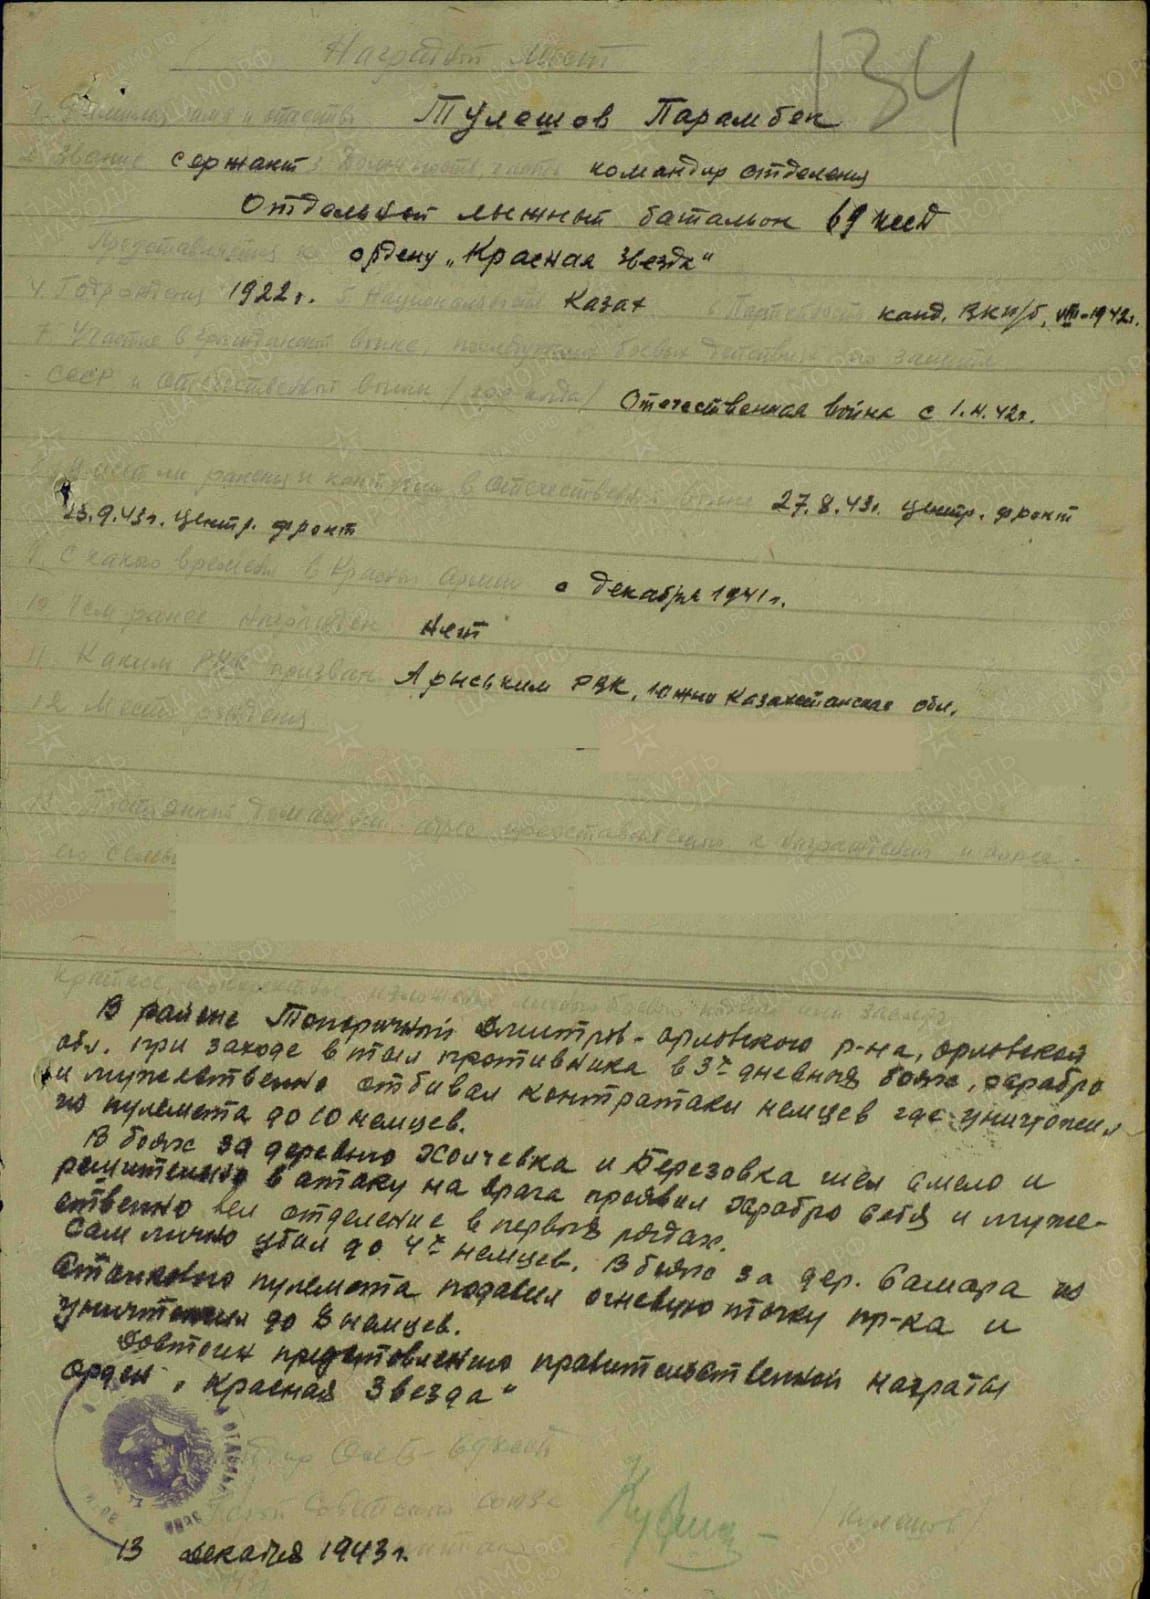 Наградной лист
134
1. Фамилия имя и отчество Тулешов Парамбек
2. Звание сержант 3 Должность, часть командир отделения
Отдельный лыжный батальон 69 ксед
Представляется к ордену „Красная Звезда"
4. Год рождения 1922 г. 5. Национальность Казах 6 Партийность канд. ВКП/б, VIII-1942г.
7. Участие в гражданской войне последующих боевых действиях по защите
СССР и Отечественной войны /год когда/ Отечественная война с 1.II.42г.
8. Имеет ли ранения и контузии в Отечественной войне 27.8.43г. центр. фронт
23.9.43г. центр. фронт
9. С какого времени в Красной Армии с декабря 1941 г.
10. Чем ранее награжден Нет
11. Каким РВК призван Арыським РВК, Южно Казахстанская обл.
12. Место рождения
13. Постоянный домашний адрес представляемого к награждению и адрес
его семьи
Краткое, конкретное изложение личного боевого подвига или заслуг
В районе Топоричный Дмитров-орловского р-на, орловской
обл. при заходе в тыл противника в 3х дневных боях, храбро
и мужественно отбивал контратаки немцев где уничтожил
из пулемета до 10 немцев.
В боях за деревню Холчевка и Березовка шел смело и
решительно в атаку на врага проявил храбро себя и муже-
ственно вел отделение в первых рядах.
Сам лично убил до 4х немцев. В боях за дер. Самара из
Станкового пулемета подавил огневую точку пр-ка и
уничтожил до 8 немцев.
Достоин представлению правительственной награты
орден „Красная Звезда"
Герой Советского Союза
Кулешов
13 декабря 1943 г.